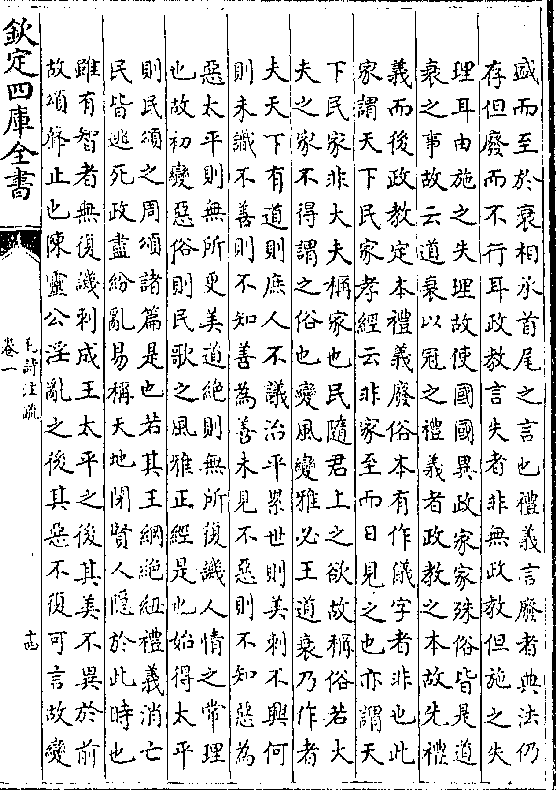 盛而至於衰相承首尾之言也禮義言廢者典法仍
存但廢而不行耳政教言失者非無政教但施之失
理耳由施之失理故使國國異政家家殊俗皆是道
衰之事故云道衰以冠之禮義者政教之本故先禮
義而後政教定本禮義廢俗本有作儀字者非也此
家謂天下民家孝經云非家至而日見之也亦謂天
下民家非大夫稱家也民隨君上之欲故稱俗若大
夫之家不得謂之俗也變風變雅必王道衰乃作者
夫天下有道則庶人不議治平累世則美刺不興何
則未識不善則不知善為善未見不惡則不知惡為
惡太平則無所更美道絶則無所復譏人情之常理
也故初變惡俗則民歌之風雅正經是也始得太平
則民頌之周頌諸篇是也若其王綱絶紐禮義消亡
民皆逃死政盡紛亂易稱天地閉賢人隱於此時也
雖有智者無復譏刺成王太平之後其美不異於前
故頌聲止也陳靈公淫亂之後其惡不復可言故變
欽定四庫全書
毛詩注疏
卷一
十四